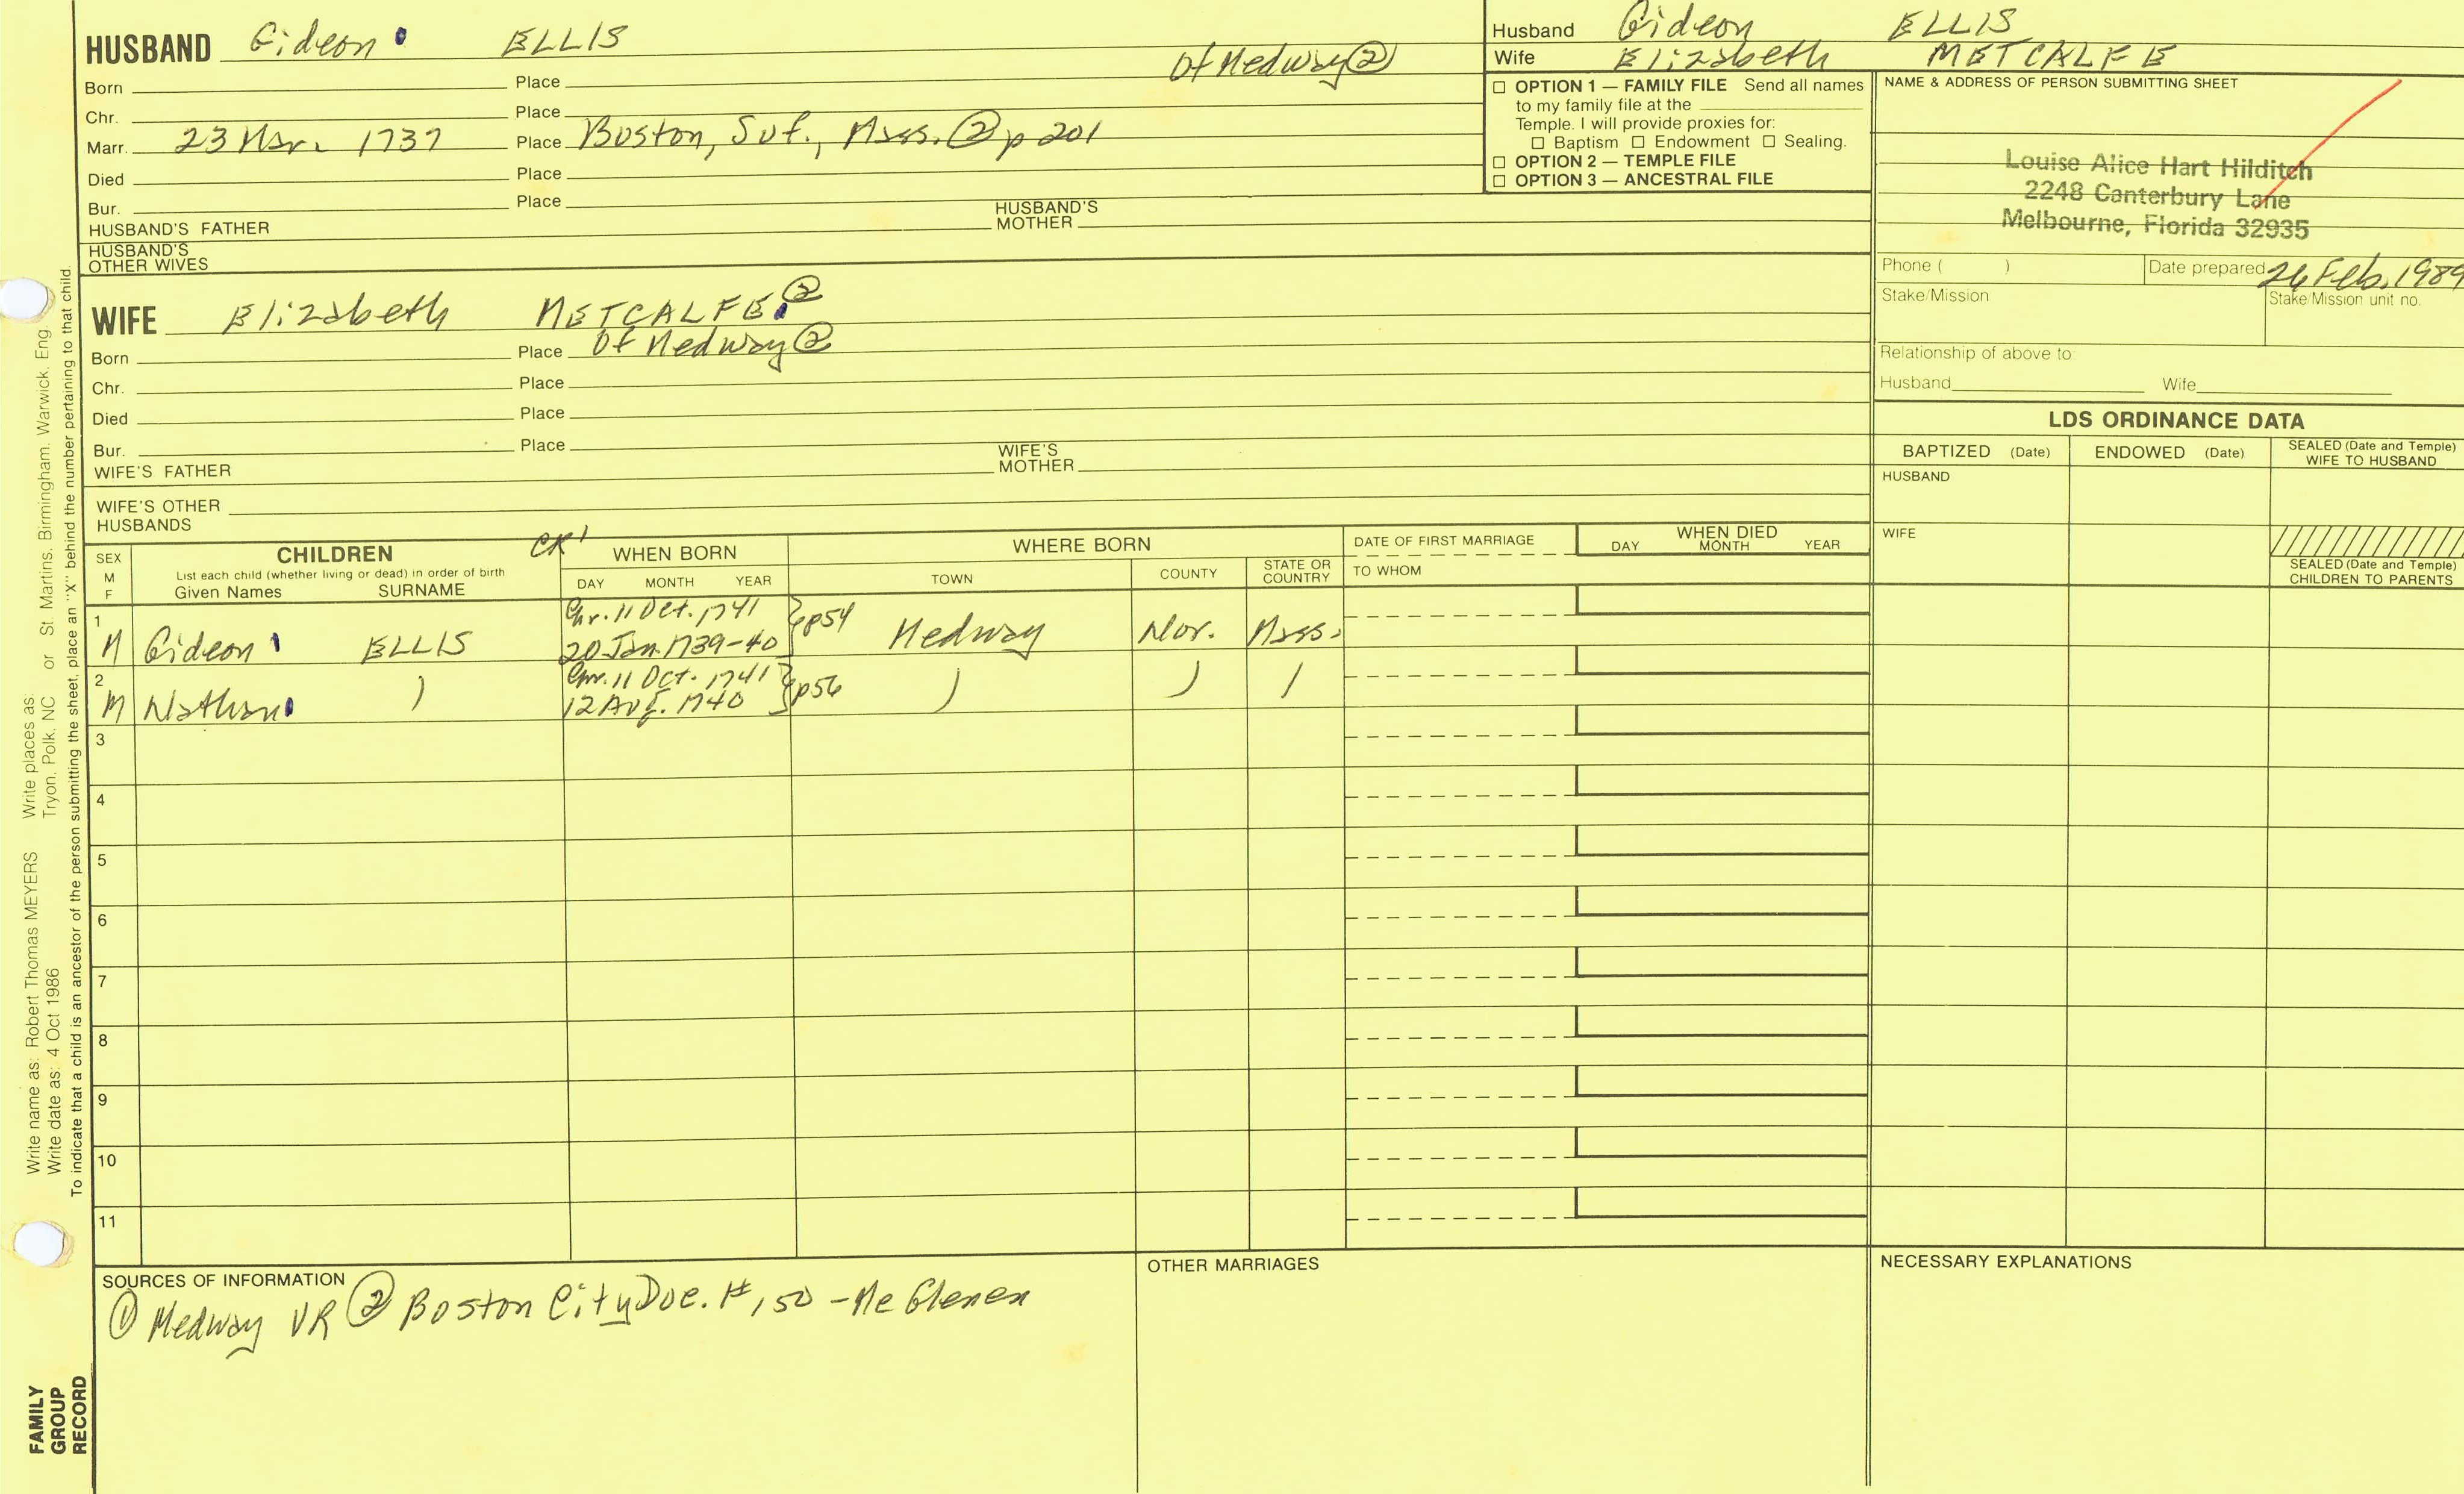 HUSBAND Gideon ELLIS Of Medway ②
Born Place
Chr. Place
Marr. 23 Mar. 1737 Place Boston, Suf., Mass. ② p 201
Died Place
Bur. Place
HUSBAND'S FATHER HUSBAND'S MOTHER
HUSBAND'S OTHER WIVES
Husband Gideon ELLIS
Wife Elizabeth METCALFE
☐ OPTION 1 — FAMILY FILE Send all names
to my family file at the
Temple. I will provide proxies for:
☐ Baptism ☐ Endowment ☐ Sealing.
☐ OPTION 2 — TEMPLE FILE
☐ OPTION 3 — ANCESTRAL FILE
NAME & ADDRESS OF PERSON SUBMITTING SHEET
Louise Alice Hart Hilditch
2248 Canterbury Lane
Melbourne, Florida 32935
Phone ( ) Date prepared 26 Feb. 1989
Stake/Mission Stake/Mission unit no.
Relationship of above to:
Husband Wife
WIFE Elizabeth METCALFE ②
Born Place Of Medway ②
Chr. Place
Died Place
Bur. Place
WIFE'S FATHER WIFE'S MOTHER
WIFE'S OTHER HUSBANDS
LDS ORDINANCE DATA
BAPTIZED (Date) ENDOWED (Date) SEALED (Date and Temple) WIFE TO HUSBAND
HUSBAND
WIFE
SEALED (Date and Temple) CHILDREN TO PARENTS
SEX M F
CHILDREN
List each child (whether living or dead) in order of birth
Given Names SURNAME
CR1
WHEN BORN
DAY MONTH YEAR
WHERE BORN
TOWN COUNTY STATE OR COUNTRY
DATE OF FIRST MARRIAGE
TO WHOM
WHEN DIED
DAY MONTH YEAR
1 Chr. 11 Oct. 1741
M Gideon ELLIS 20 Jan. 1739-40 } p54 Medway Nor. Mass.
2 Chr. 11 Oct. 1741
M Nathan ) 12 Aug. 1740 } p56 ) ) /
3
4
5
6
7
8
9
10
11
SOURCES OF INFORMATION
① Medway VR ② Boston City Doc. #150 - McGlenen
OTHER MARRIAGES
NECESSARY EXPLANATIONS
Write name as: Robert Thomas MEYERS Write places as:
Write date as: 4 Oct 1986 Tryon, Polk, NC or St. Martins, Birmingham, Warwick, Eng.
To indicate that a child is an ancestor of the person submitting the sheet, place an "X" behind the number pertaining to that child.
FAMILY
GROUP
RECORD